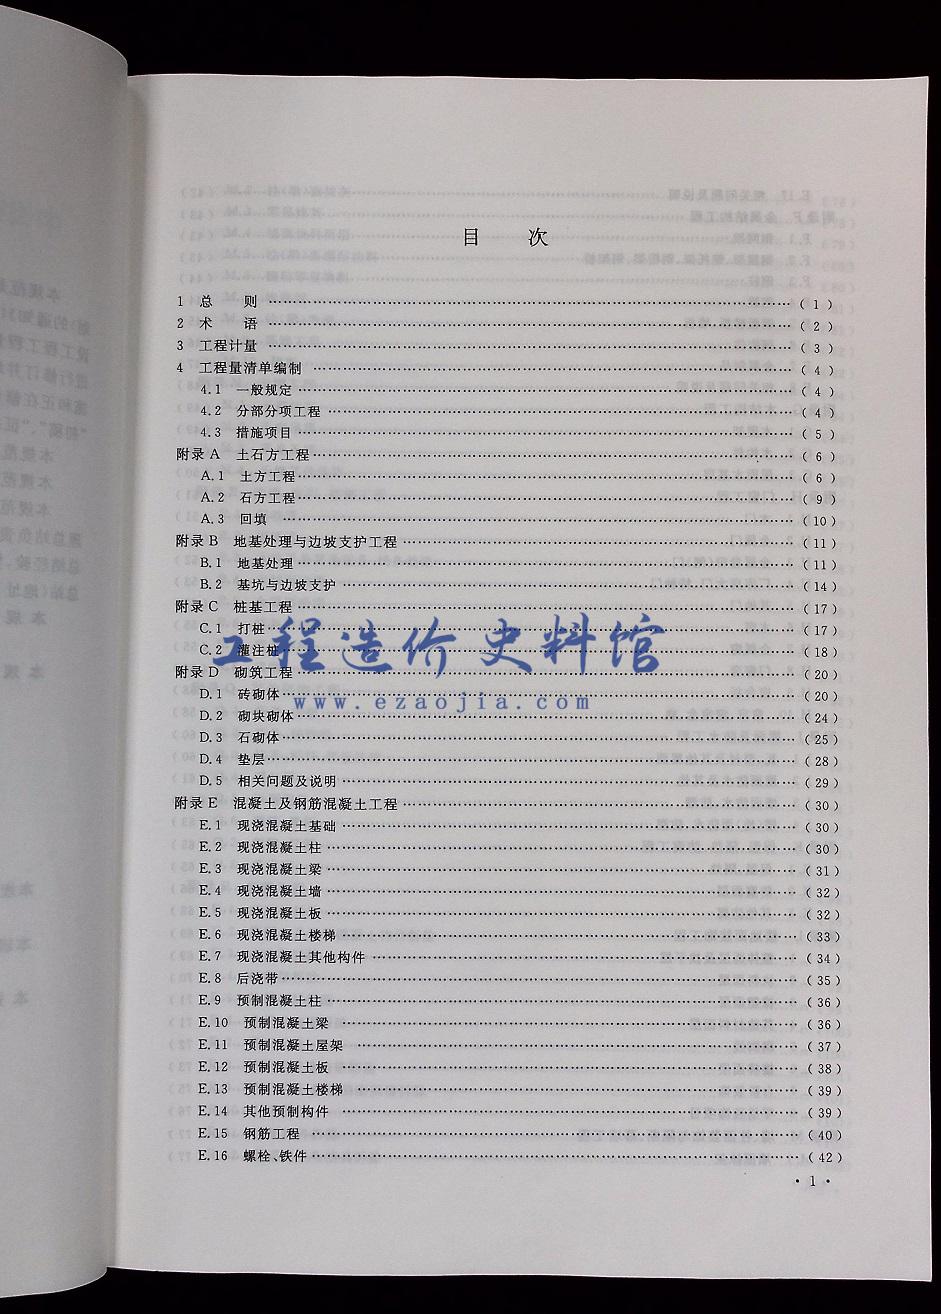 目 次
1 总 则 ……（1）
2 术 语 ……（2）
3 工程计量 ……（3）
4 工程量清单编制 ……（4）
4.1 一般规定 ……（4）
4.2 分部分项工程 ……（4）
4.3 措施项目 ……（5）
附录A 土石方工程 ……（6）
A.1 土方工程 ……（6）
A.2 石方工程 ……（9）
A.3 回填 ……（10）
附录B 地基处理与边坡支护工程 ……（11）
B.1 地基处理 ……（11）
B.2 基坑与边坡支护 ……（14）
附录C 桩基工程 ……（17）
C.1 打桩 ……（17）
C.2 灌注桩 ……（18）
工程造价史料馆
附录D 砌筑工程 ……（20）
D.1 砖砌体 ……（20）
www.ezaojia.com
D.2 砌块砌体 ……（24）
D.3 石砌体 ……（25）
D.4 垫层 ……（28）
D.5 相关问题及说明 ……（29）
附录E 混凝土及钢筋混凝土工程 ……（30）
E.1 现浇混凝土基础 ……（30）
E.2 现浇混凝土柱 ……（30）
E.3 现浇混凝土梁 ……（31）
E.4 现浇混凝土墙 ……（32）
E.5 现浇混凝土板 ……（32）
E.6 现浇混凝土楼梯 ……（33）
E.7 现浇混凝土其他构件 ……（34）
E.8 后浇带 ……（35）
E.9 预制混凝土柱 ……（36）
E.10 预制混凝土梁 ……（36）
E.11 预制混凝土屋架 ……（37）
E.12 预制混凝土板 ……（38）
E.13 预制混凝土楼梯 ……（39）
E.14 其他预制构件 ……（39）
E.15 钢筋工程 ……（40）
E.16 螺栓、铁件 ……（42）
· 1 ·